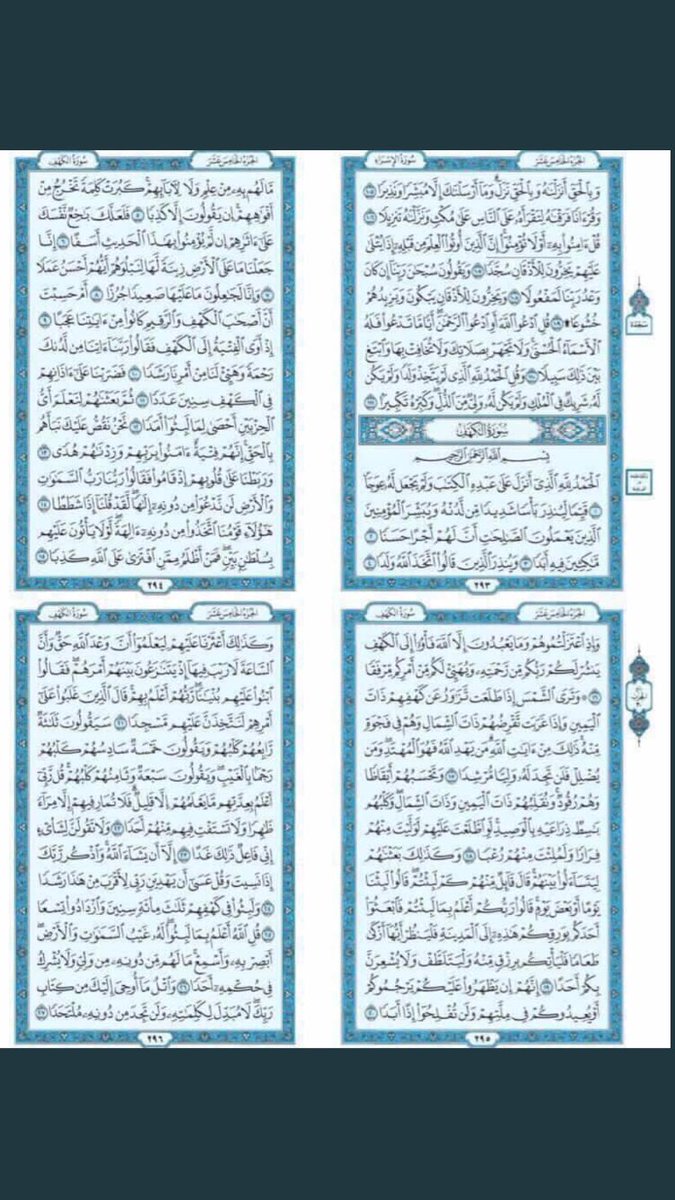 الجُزْءُ الخَامِسَ عَشَرَ سُورَةُ الإِسْرَاءِ
وَبِٱلْحَقِّ أَنزَلْنَٰهُ وَبِٱلْحَقِّ نَزَلَۗ وَمَآ أَرْسَلْنَٰكَ إِلَّا مُبَشِّرًا وَنَذِيرًا ١٠٥
وَقُرْءَانًا فَرَقْنَٰهُ لِتَقْرَأَهُۥ عَلَى ٱلنَّاسِ عَلَىٰ مُكْثٍ وَنَزَّلْنَٰهُ تَنزِيلًا ١٠٦
قُلْ ءَامِنُوا۟ بِهِۦٓ أَوْ لَا تُؤْمِنُوٓا۟ۚ إِنَّ ٱلَّذِينَ أُوتُوا۟ ٱلْعِلْمَ مِن قَبْلِهِۦٓ إِذَا يُتْلَىٰ
عَلَيْهِمْ يَخِرُّونَ لِلْأَذْقَانِ سُجَّدًا ١٠٧ وَيَقُولُونَ سُبْحَٰنَ رَبِّنَآ إِن كَانَ
وَعْدُ رَبِّنَا لَمَفْعُولًا ١٠٨ وَيَخِرُّونَ لِلْأَذْقَانِ يَبْكُونَ وَيَزِيدُهُمْ
خُشُوعًا۩ ١٠٩ قُلِ ٱدْعُوا۟ ٱللَّهَ أَوِ ٱدْعُوا۟ ٱلرَّحْمَٰنَۖ أَيًّا مَّا تَدْعُوا۟ فَلَهُ
ٱلْأَسْمَآءُ ٱلْحُسْنَىٰۚ وَلَا تَجْهَرْ بِصَلَاتِكَ وَلَا تُخَافِتْ بِهَا وَٱبْتَغِ
بَيْنَ ذَٰلِكَ سَبِيلًا ١١٠ وَقُلِ ٱلْحَمْدُ لِلَّهِ ٱلَّذِى لَمْ يَتَّخِذْ وَلَدًا وَلَمْ يَكُن
لَّهُۥ شَرِيكٌ فِى ٱلْمُلْكِ وَلَمْ يَكُن لَّهُۥ وَلِىٌّ مِّنَ ٱلذُّلِّۖ وَكَبِّرْهُ تَكْبِيرًا ١١١
سُورَةُ الكَهْفِ
بِسْمِ ٱللَّهِ ٱلرَّحْمَٰنِ ٱلرَّحِيمِ
ٱلْحَمْدُ لِلَّهِ ٱلَّذِىٓ أَنزَلَ عَلَىٰ عَبْدِهِ ٱلْكِتَٰبَ وَلَمْ يَجْعَل لَّهُۥ عِوَجَا
١ قَيِّمًا لِّيُنذِرَ بَأْسًا شَدِيدًا مِّن لَّدُنْهُ وَيُبَشِّرَ ٱلْمُؤْمِنِينَ
ٱلَّذِينَ يَعْمَلُونَ ٱلصَّٰلِحَٰتِ أَنَّ لَهُمْ أَجْرًا حَسَنًا ٢
مَّٰكِثِينَ فِيهِ أَبَدًا ٣ وَيُنذِرَ ٱلَّذِينَ قَالُوا۟ ٱتَّخَذَ ٱللَّهُ وَلَدًا ٤
٢٩٣
سَجْدَة
الجُزْءُ الخَامِسَ عَشَرَ سُورَةُ الكَهْفِ
مَّا لَهُم بِهِۦ مِنْ عِلْمٍ وَلَا لِءَابَآئِهِمْۚ كَبُرَتْ كَلِمَةً تَخْرُجُ مِنْ
أَفْوَٰهِهِمْۚ إِن يَقُولُونَ إِلَّا كَذِبًا ٥ فَلَعَلَّكَ بَٰخِعٌ نَّفْسَكَ
عَلَىٰٓ ءَاثَٰرِهِمْ إِن لَّمْ يُؤْمِنُوا۟ بِهَٰذَا ٱلْحَدِيثِ أَسَفًا ٦ إِنَّا
جَعَلْنَا مَا عَلَى ٱلْأَرْضِ زِينَةً لَّهَا لِنَبْلُوَهُمْ أَيُّهُمْ أَحْسَنُ عَمَلًا
٧ وَإِنَّا لَجَٰعِلُونَ مَا عَلَيْهَا صَعِيدًا جُرُزًا ٨ أَمْ حَسِبْتَ
أَنَّ أَصْحَٰبَ ٱلْكَهْفِ وَٱلرَّقِيمِ كَانُوا۟ مِنْ ءَايَٰتِنَا عَجَبًا ٩
إِذْ أَوَى ٱلْفِتْيَةُ إِلَى ٱلْكَهْفِ فَقَالُوا۟ رَبَّنَآ ءَاتِنَا مِن لَّدُنكَ
رَحْمَةً وَهَيِّئْ لَنَا مِنْ أَمْرِنَا رَشَدًا ١٠ فَضَرَبْنَا عَلَىٰٓ ءَاذَانِهِمْ
فِى ٱلْكَهْفِ سِنِينَ عَدَدًا ١١ ثُمَّ بَعَثْنَٰهُمْ لِنَعْلَمَ أَىُّ
ٱلْحِزْبَيْنِ أَحْصَىٰ لِمَا لَبِثُوٓا۟ أَمَدًا ١٢ نَّحْنُ نَقُصُّ عَلَيْكَ نَبَأَهُم
بِٱلْحَقِّۚ إِنَّهُمْ فِتْيَةٌ ءَامَنُوا۟ بِرَبِّهِمْ وَزِدْنَٰهُمْ هُدًى ١٣
وَرَبَطْنَا عَلَىٰ قُلُوبِهِمْ إِذْ قَامُوا۟ فَقَالُوا۟ رَبُّنَا رَبُّ ٱلسَّمَٰوَٰتِ
وَٱلْأَرْضِ لَن نَّدْعُوَا۟ مِن دُونِهِۦٓ إِلَٰهًاۖ لَّقَدْ قُلْنَآ إِذًا شَطَطًا ١٤
هَٰٓؤُلَآءِ قَوْمُنَا ٱتَّخَذُوا۟ مِن دُونِهِۦٓ ءَالِهَةًۖ لَّوْلَا يَأْتُونَ عَلَيْهِم
بِسُلْطَٰنٍۭ بَيِّنٍۖ فَمَنْ أَظْلَمُ مِمَّنِ ٱفْتَرَىٰ عَلَى ٱللَّهِ كَذِبًا ١٥
٢٩٤
الجُزْءُ الخَامِسَ عَشَرَ سُورَةُ الكَهْفِ
وَإِذِ ٱعْتَزَلْتُمُوهُمْ وَمَا يَعْبُدُونَ إِلَّا ٱللَّهَ فَأْوُۥٓا۟ إِلَى ٱلْكَهْفِ
يَنشُرْ لَكُمْ رَبُّكُم مِّن رَّحْمَتِهِۦ وَيُهَيِّئْ لَكُم مِّنْ أَمْرِكُم مِّرْفَقًا
١٦ وَتَرَى ٱلشَّمْسَ إِذَا طَلَعَت تَّزَٰوَرُ عَن كَهْفِهِمْ ذَاتَ
ٱلْيَمِينِ وَإِذَا غَرَبَت تَّقْرِضُهُمْ ذَاتَ ٱلشِّمَالِ وَهُمْ فِى فَجْوَةٍ
مِّنْهُۚ ذَٰلِكَ مِنْ ءَايَٰتِ ٱللَّهِۗ مَن يَهْدِ ٱللَّهُ فَهُوَ ٱلْمُهْتَدِۖ وَمَن
يُضْلِلْ فَلَن تَجِدَ لَهُۥ وَلِيًّا مُّرْشِدًا ١٧ وَتَحْسَبُهُمْ أَيْقَاظًا
وَهُمْ رُقُودٌۚ وَنُقَلِّبُهُمْ ذَاتَ ٱلْيَمِينِ وَذَاتَ ٱلشِّمَالِۖ وَكَلْبُهُم
بَٰسِطٌ ذِرَاعَيْهِ بِٱلْوَصِيدِۚ لَوِ ٱطَّلَعْتَ عَلَيْهِمْ لَوَلَّيْتَ مِنْهُمْ
فِرَارًا وَلَمُلِئْتَ مِنْهُمْ رُعْبًا ١٨ وَكَذَٰلِكَ بَعَثْنَٰهُمْ
لِيَتَسَآءَلُوا۟ بَيْنَهُمْۚ قَالَ قَآئِلٌ مِّنْهُمْ كَمْ لَبِثْتُمْۖ قَالُوا۟ لَبِثْنَا
يَوْمًا أَوْ بَعْضَ يَوْمٍۚ قَالُوا۟ رَبُّكُمْ أَعْلَمُ بِمَا لَبِثْتُمْ فَٱبْعَثُوٓا۟
أَحَدَكُم بِوَرِقِكُمْ هَٰذِهِۦٓ إِلَى ٱلْمَدِينَةِ فَلْيَنظُرْ أَيُّهَآ أَزْكَىٰ
طَعَامًا فَلْيَأْتِكُم بِرِزْقٍ مِّنْهُ وَلْيَتَلَطَّفْ وَلَا يُشْعِرَنَّ
بِكُمْ أَحَدًا ١٩ إِنَّهُمْ إِن يَظْهَرُوا۟ عَلَيْكُمْ يَرْجُمُوكُمْ
أَوْ يُعِيدُوكُمْ فِى مِلَّتِهِمْ وَلَن تُفْلِحُوٓا۟ إِذًا أَبَدًا ٢٠
٢٩٥
الجُزْءُ الخَامِسَ عَشَرَ سُورَةُ الكَهْفِ
وَكَذَٰلِكَ أَعْثَرْنَا عَلَيْهِمْ لِيَعْلَمُوٓا۟ أَنَّ وَعْدَ ٱللَّهِ حَقٌّ وَأَنَّ
ٱلسَّاعَةَ لَا رَيْبَ فِيهَآ إِذْ يَتَنَٰزَعُونَ بَيْنَهُمْ أَمْرَهُمْۖ فَقَالُوا۟
ٱبْنُوا۟ عَلَيْهِم بُنْيَٰنًاۖ رَّبُّهُمْ أَعْلَمُ بِهِمْۚ قَالَ ٱلَّذِينَ غَلَبُوا۟ عَلَىٰٓ
أَمْرِهِمْ لَنَتَّخِذَنَّ عَلَيْهِم مَّسْجِدًا ٢١ سَيَقُولُونَ ثَلَٰثَةٌ
رَّابِعُهُمْ كَلْبُهُمْ وَيَقُولُونَ خَمْسَةٌ سَادِسُهُمْ كَلْبُهُمْ
رَجْمًۢا بِٱلْغَيْبِۖ وَيَقُولُونَ سَبْعَةٌ وَثَامِنُهُمْ كَلْبُهُمْۚ قُل رَّبِّىٓ
أَعْلَمُ بِعِدَّتِهِم مَّا يَعْلَمُهُمْ إِلَّا قَلِيلٌۗ فَلَا تُمَارِ فِيهِمْ إِلَّا مِرَآءً
ظَٰهِرًا وَلَا تَسْتَفْتِ فِيهِم مِّنْهُمْ أَحَدًا ٢٢ وَلَا تَقُولَنَّ لِشَا۟ىْءٍ
إِنِّى فَاعِلٌ ذَٰلِكَ غَدًا ٢٣ إِلَّآ أَن يَشَآءَ ٱللَّهُۚ وَٱذْكُر رَّبَّكَ
إِذَا نَسِيتَ وَقُلْ عَسَىٰٓ أَن يَهْدِيَنِ رَبِّى لِأَقْرَبَ مِنْ هَٰذَا رَشَدًا
٢٤ وَلَبِثُوا۟ فِى كَهْفِهِمْ ثَلَٰثَ مِا۟ئَةٍ سِنِينَ وَٱزْدَادُوا۟ تِسْعًا
٢٥ قُلِ ٱللَّهُ أَعْلَمُ بِمَا لَبِثُوا۟ۖ لَهُۥ غَيْبُ ٱلسَّمَٰوَٰتِ وَٱلْأَرْضِۖ
أَبْصِرْ بِهِۦ وَأَسْمِعْۚ مَا لَهُم مِّن دُونِهِۦ مِن وَلِىٍّ وَلَا يُشْرِكُ
فِى حُكْمِهِۦٓ أَحَدًا ٢٦ وَٱتْلُ مَآ أُوحِىَ إِلَيْكَ مِن كِتَابِ
رَبِّكَۖ لَا مُبَدِّلَ لِكَلِمَٰتِهِۦ وَلَن تَجِدَ مِن دُونِهِۦ مُلْتَحَدًا ٢٧
٢٩٦